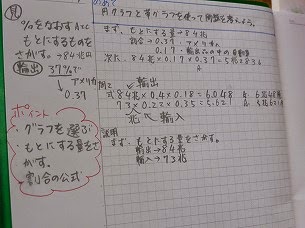 見
%をなおす
もとにするものを
さがす。→84兆円
輸出 37%で
アメリカ
0.37
ポイント
・グラフを選ぶ
・もとにする量をさがす。
・割合の公式
めあて
円グラフと帯グラフを使って問題を考えよう。
まず、もとにする量→84兆
割合→0.37 アメリカ
0.17→輸出品の中の自動車
次に、84兆×0.17×0.37=5兆2836
輸出
式 84兆×0.4×0.18=6.048
73×0.22×0.35=5.621
北 輸入
説明
まず、もとにする量をさがす。
輸出→84兆
輸入→73兆